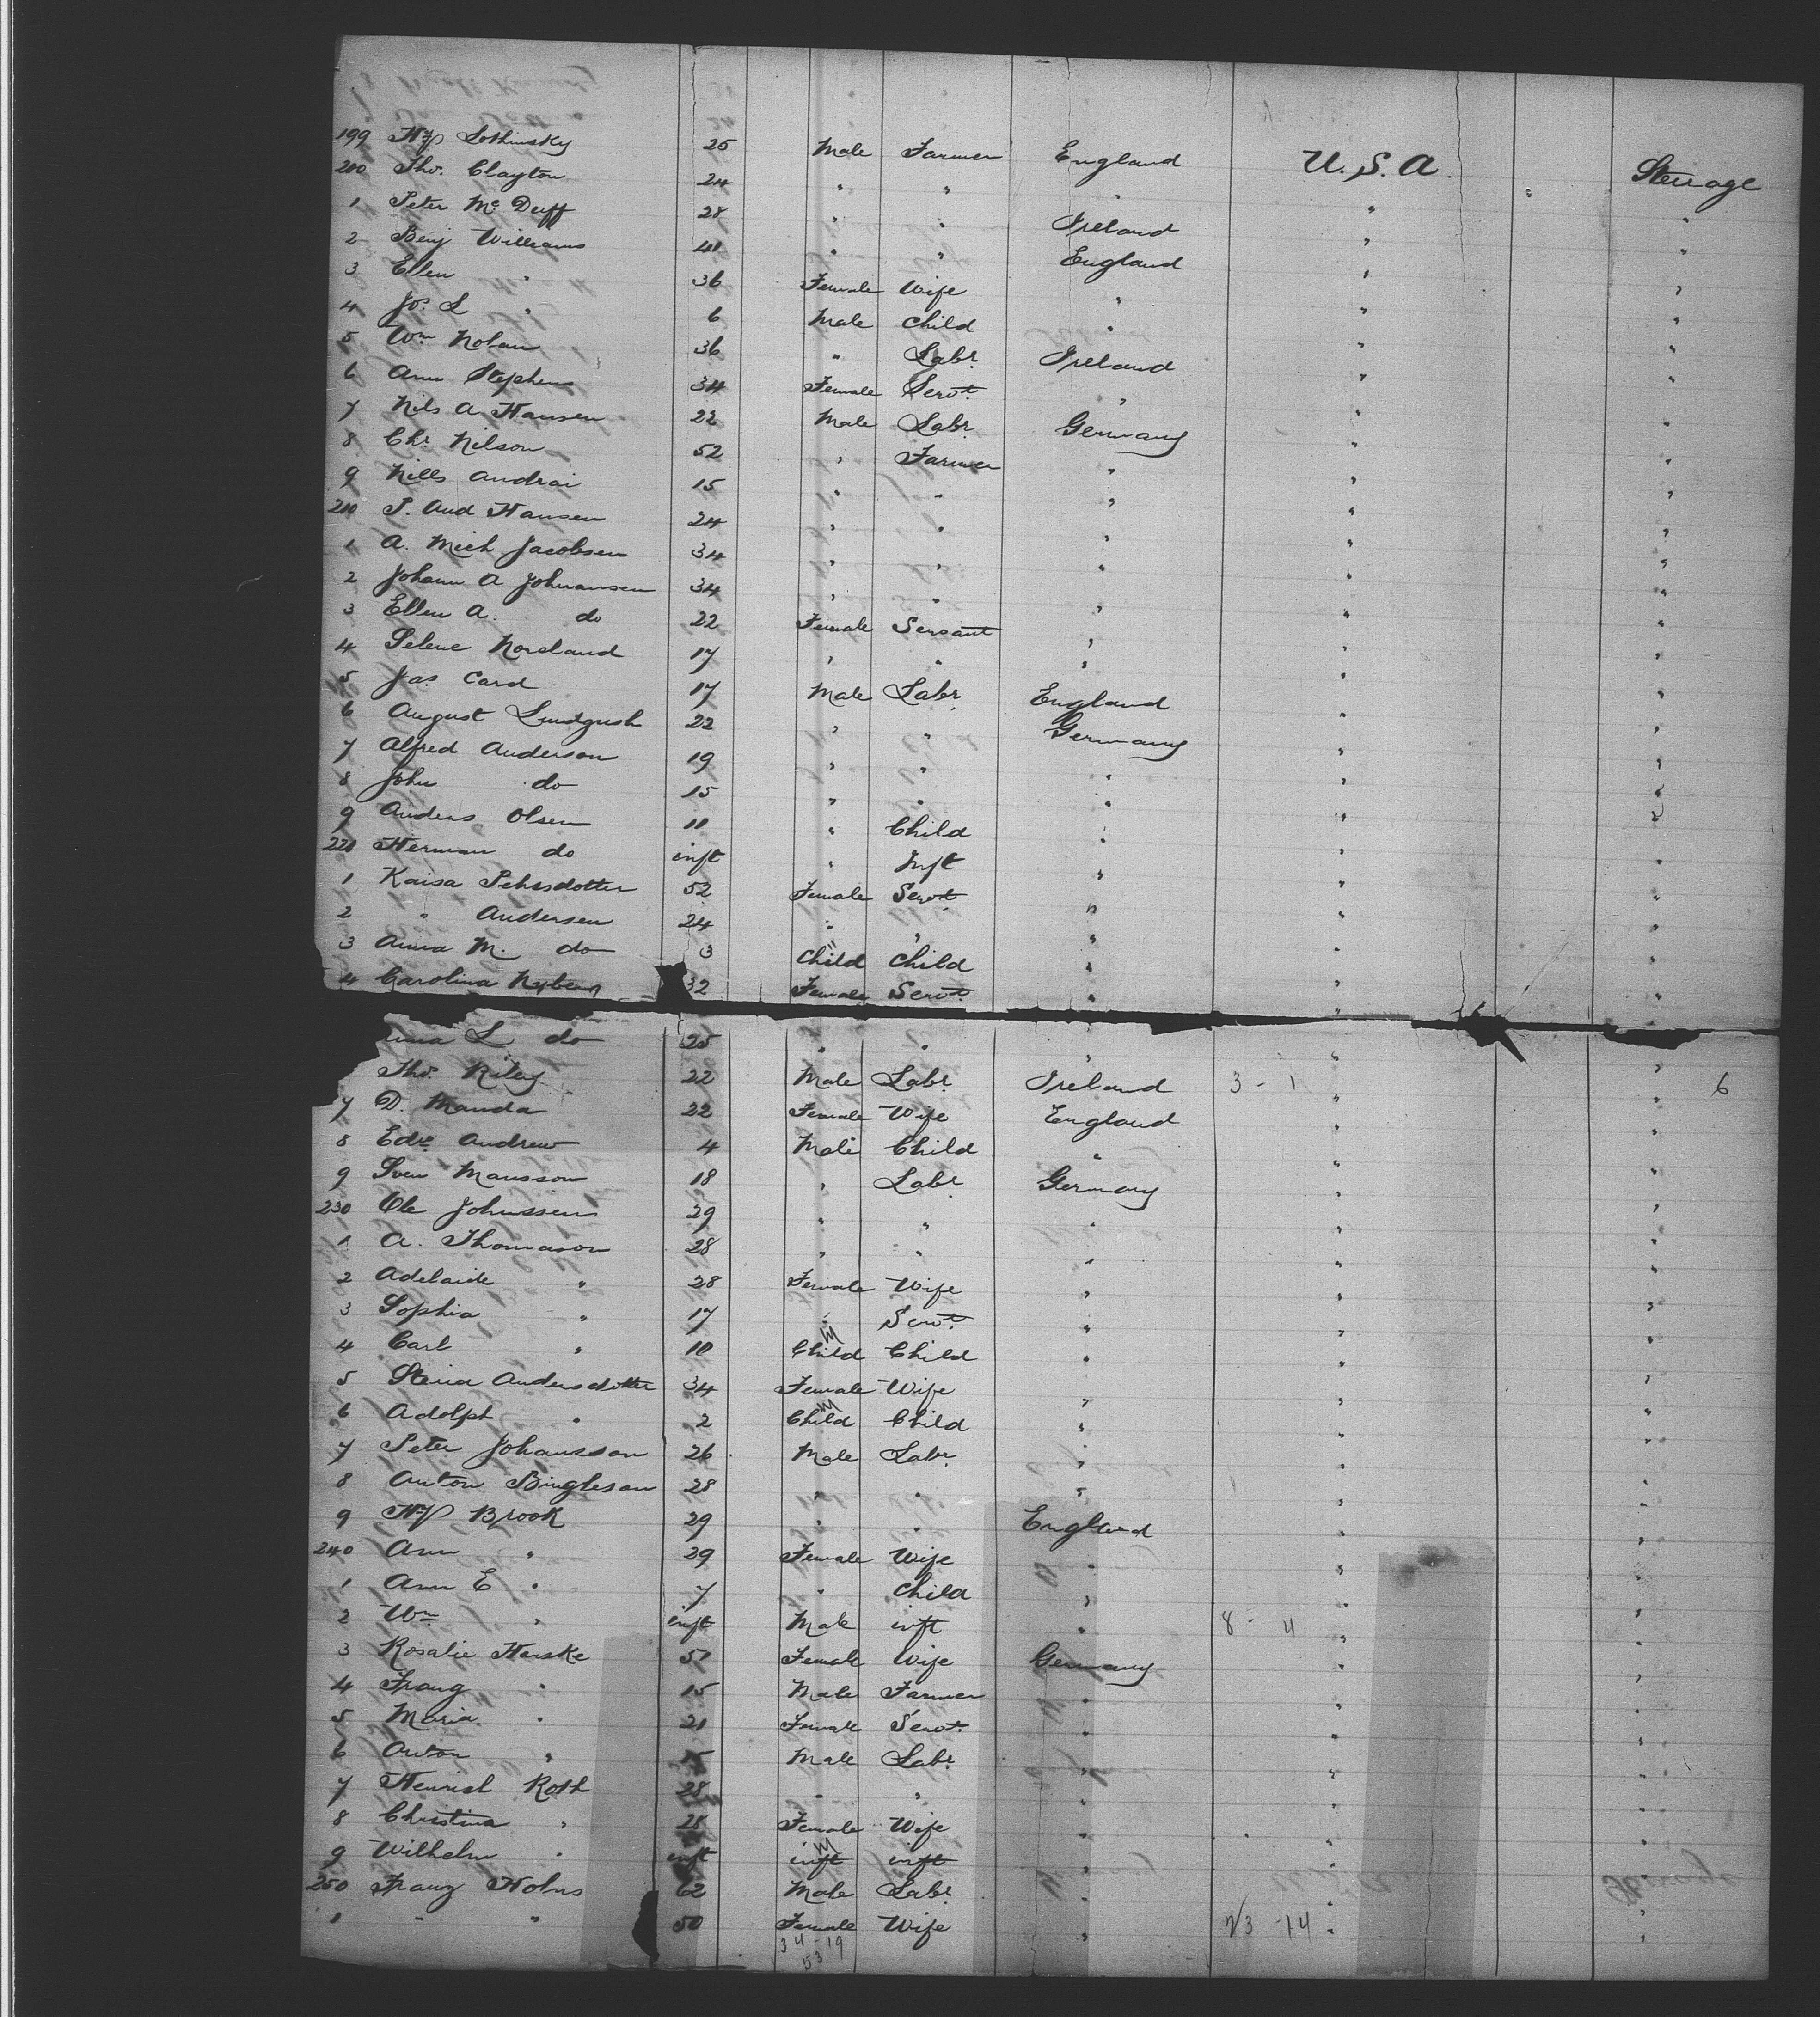 199 Hy Sothinsky 25 Male Farmer England U.S.A. Steerage
200 Tho. Clayton 24 " " " " "
1 Peter Mc Duff 28 " " Ireland " "
2 Benj Williams 41 " " England " "
3 Ellen " 36 Female Wife " " "
4 Jos. L " 6 Male Child " " "
5 Wm Nolan 36 " Labr Ireland " "
6 Ann Stephens 34 Female Servt. " " "
7 Nils A Hansen 22 Male Labr Germany " "
8 Chr. Nilson 52 " Farmer " " "
9 Nills Andrai 15 " " " " "
210 P. And Hansen 24 " " " " "
1 A. Mich Jacobsen 34 " " " " "
2 Johann A Johnansen 34 " " " " "
3 Ellen A. do 22 Female Servant " " "
4 Selene Noreland 17 " " " " "
5 Jas. Card 17 Male Labr England " "
6 August 22 " " Germany " "
7 Alfred Anderson 19 " " " " "
8 John do 15 " " " " "
9 Anders Olsen 11 " Child " " "
220 Herman do inft " Inft " " "
1 Kaisa Pehrsdotter 52 Female Servt " " "
2 " Andersen 24 " " " " "
3 Anna M. do 3 Child Child " " "
4 Carolina Nyberg 32 Female Servt " " "
L do 25 " " " " "
Tho. Riley 22 Male Labr Ireland 3 - 1 " " 6
7 D. Manda 22 Female Wife England " "
8 Edw. Andrew 4 Male Child " " "
9 Sven Mansson 18 " Labr Germany " "
230 Ole Johnssen 29 " " " " "
1 A. Thomason 28 " " " " "
2 Adelaide " 28 Female Wife " " "
3 Sophia " 17 " Servt. " " "
4 Carl " 10 M Child Child " " "
5 Andersdotter 34 Female Wife " " "
6 Adolph " 2 M Child Child " " "
7 Peter Johansson 26 Male Labr " " "
8 Anton Bingleson 28 " " " " "
9 Hy Brook 29 " " England " "
240 Ann " 29 Female Wife " " "
1 Ann E " 7 " Child " " "
2 Wm " inft Male inft " 8 - 4 " "
3 Rosalie Herske 51 Female Wife Germany " "
4 Franz " 15 Male Farmer " " "
5 Maria " 21 Female Servt. " " "
6 Anton " Male Labr " " "
7 Heinrich Roth 28 " " " " "
8 Christina " 28 Female Wife " " "
9 Wilhelm " inft M inft inft " " "
250 Franz Holns 62 Male Labr " " "
1 " " 50 Female Wife " 23 - 14 " "
34 - 19
53